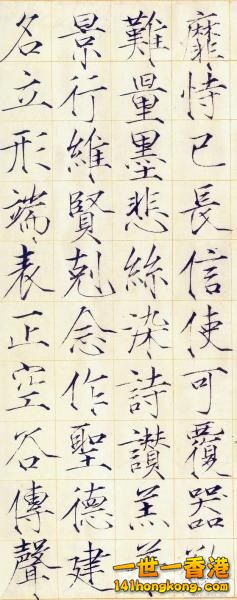 靡恃己長信使可覆器
難量墨悲絲染詩讚羔
景行維賢剋念作聖德建
名立形端表正空谷傳聲
一世一香港
141hongkong.com